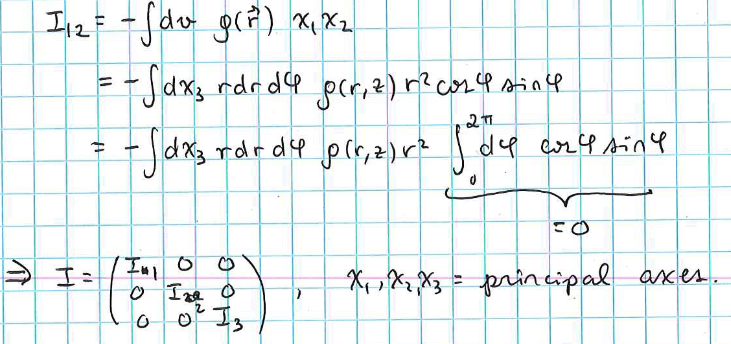 I₁₂ = - ∫dv ρ(r⃗) x₁x₂
= - ∫dx₃ rdrdφ ρ(r,z) r² cosφ sinφ
= - ∫dx₃ rdrdφ ρ(r,z) r² ∫₀^2π dφ cosφ sinφ
=0
⇒ I = ( I₁ 0 0 ; 0 I₂ 0 ; 0 0 I₃ ) , x₁, x₂, x₃ = principal axes.